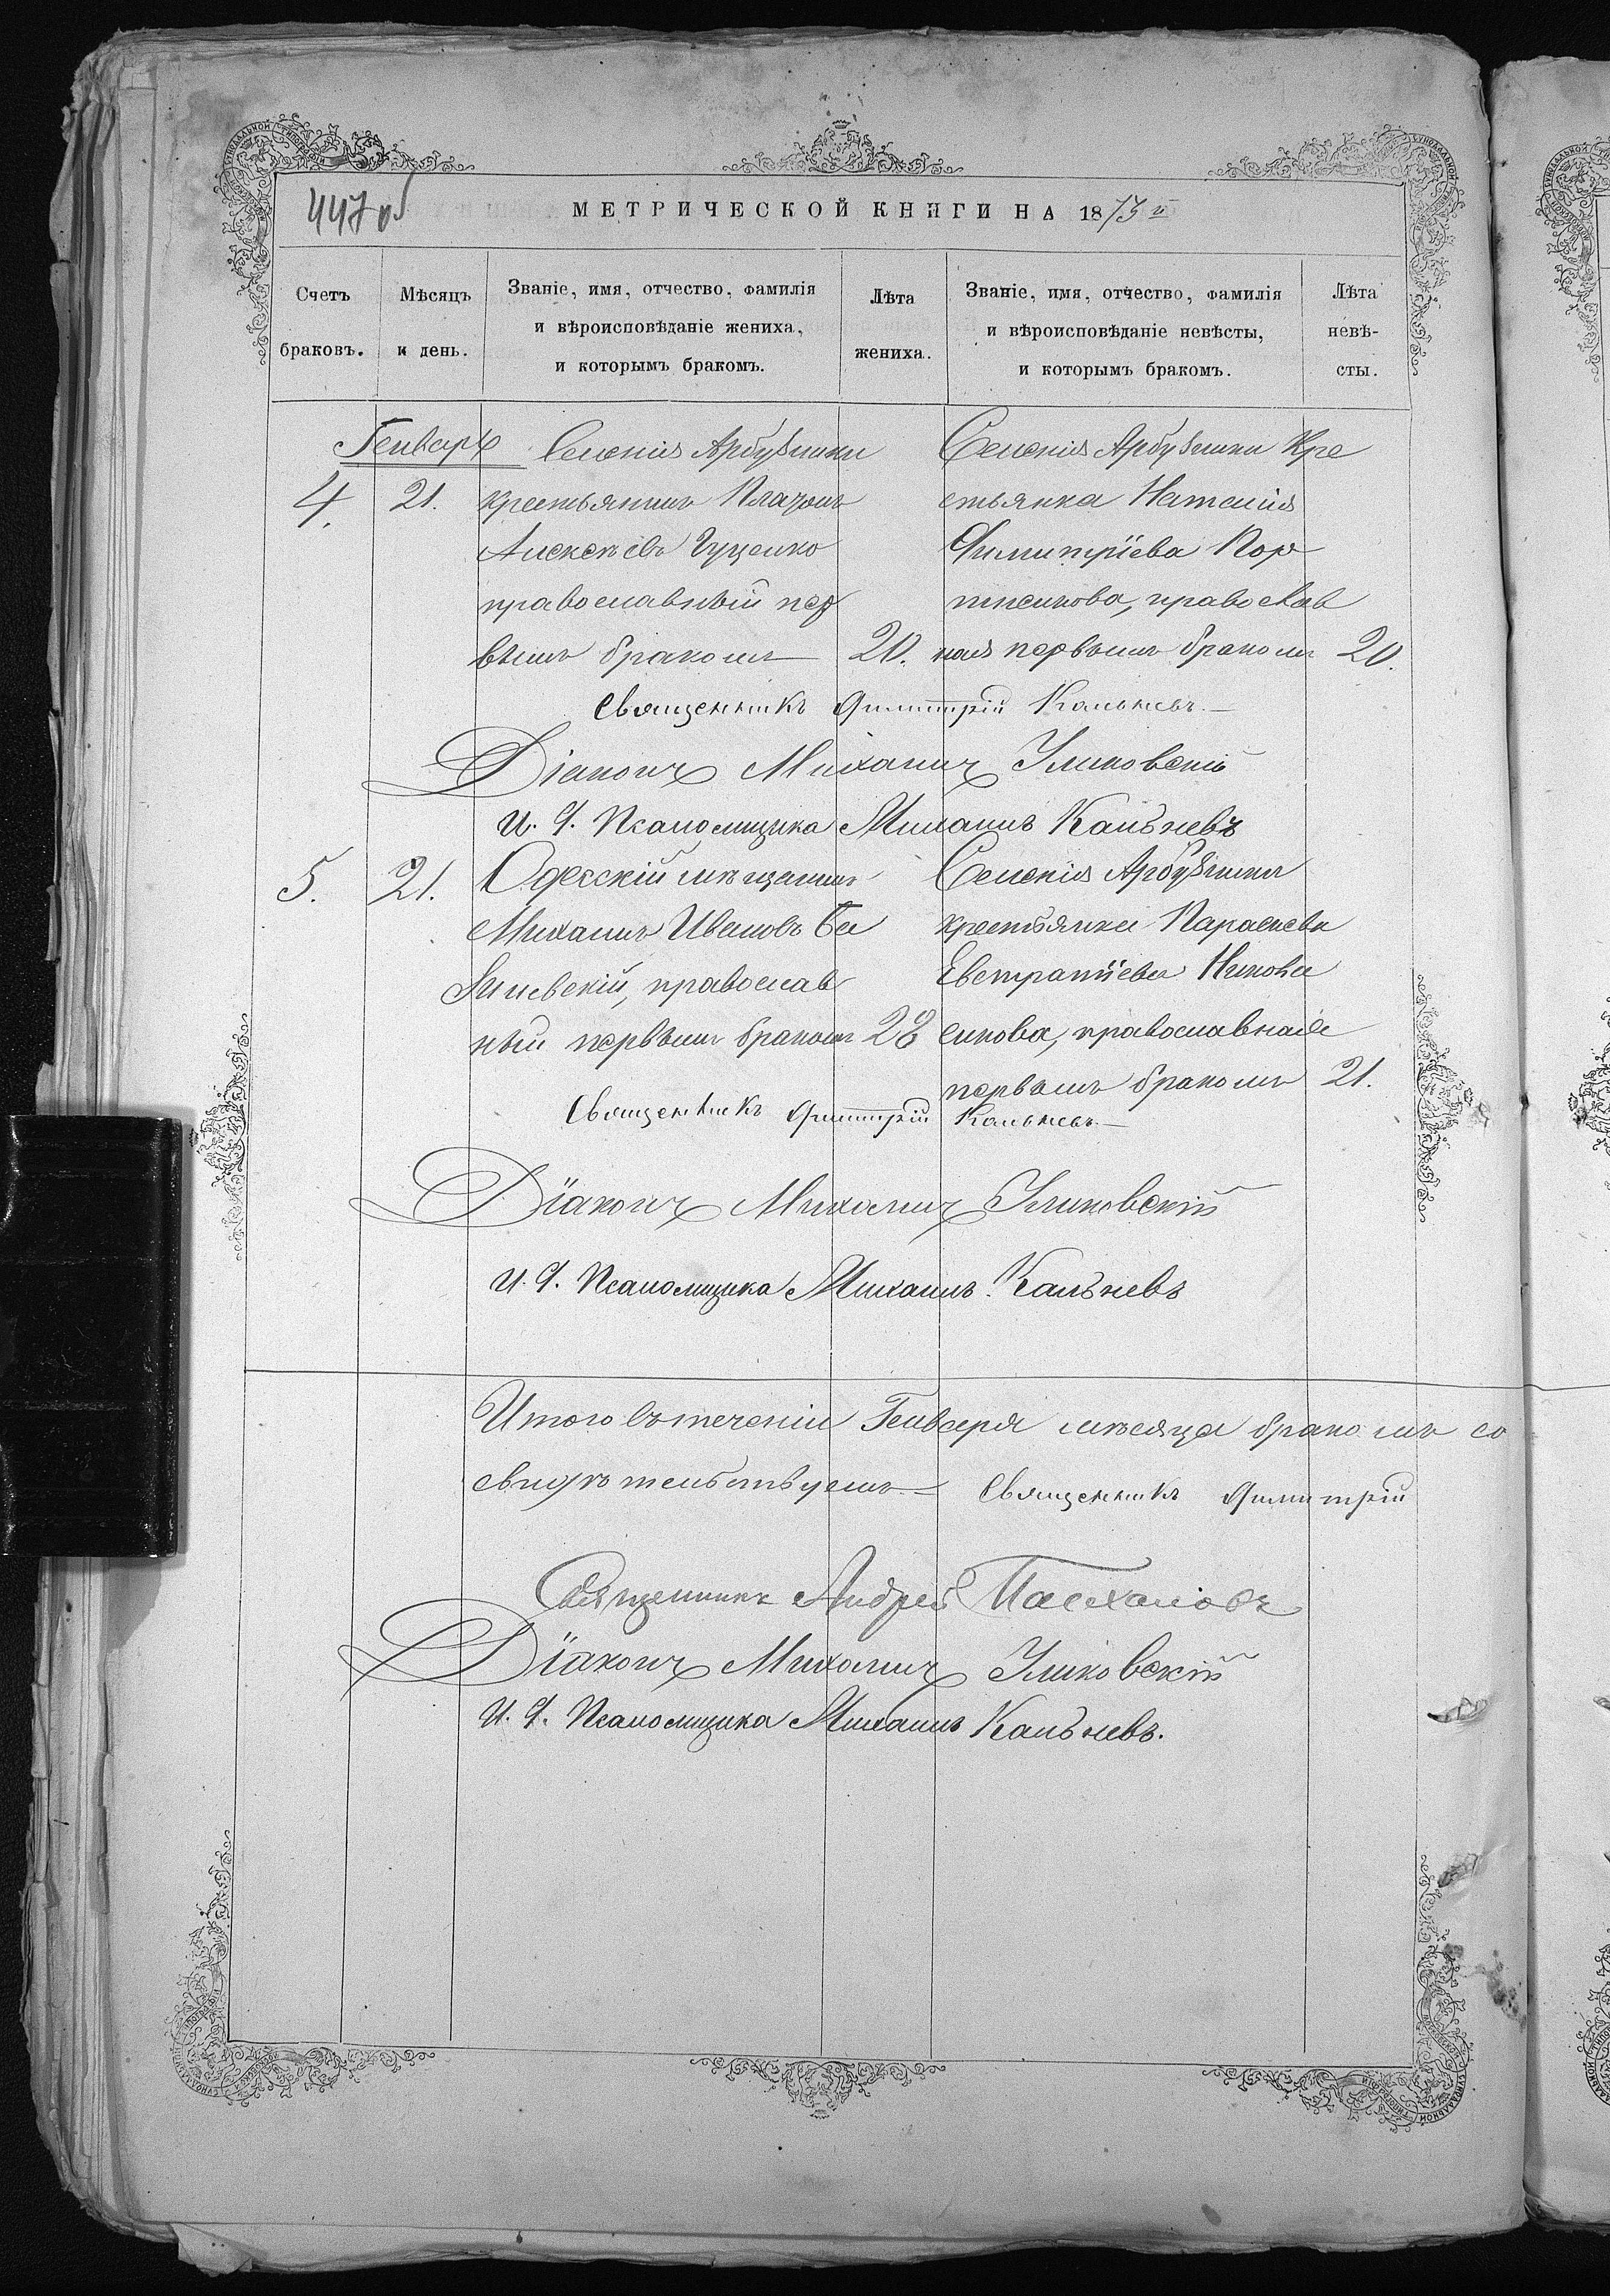 447 об
МЕТРИЧЕСКОЙ КНИГИ НА 1873 й
Счетъ браковъ.
Мѣсяцъ и день.
Званіе, имя, отчество, фамилія
и вѣроисповѣданіе жениха,
и которымъ бракомъ.
Лѣта жениха.
Званіе, имя, отчество, фамилія
и вѣроисповѣданіе невѣсты,
и которымъ бракомъ.
Лѣта невѣ-
сты.
Генварь
4.
21.
Селенія Арбузинки
крестьянинъ Платонъ
Алексѣевъ Гуценко
православный пер
вымъ бракомъ
20.
Селенія Арбузинки Кре
стьянка Наталія
Димитріева Пор
тненкова, православ
ная первымъ бракомъ
20.
Священникъ Димитрій Кальневъ
Діаконъ Михаилъ Улиновскій
И. д. Псаломщика Михаилъ Кальневъ
5.
21.
Одесскій мѣщанинъ
Михаилъ Ивановъ Ба
зилевскій, православ
ный первымъ бракомъ
28
Селенія Арбузинки
крестьянка Параскева
Евстратіева
православная
первымъ бракомъ
21.
Священникъ Димитрій Кальневъ
Діаконъ Михаилъ Улиновскій
И. д. Псаломщика Михаилъ Кальневъ
Итого въ теченіи Генваря мѣсяца бракомъ со
свидѣтельствуемъ
Священникъ Димитрій
Священникъ Андрей
Діаконъ Михаилъ Улиновскій
И. д. Псаломщика Михаилъ Кальневъ.